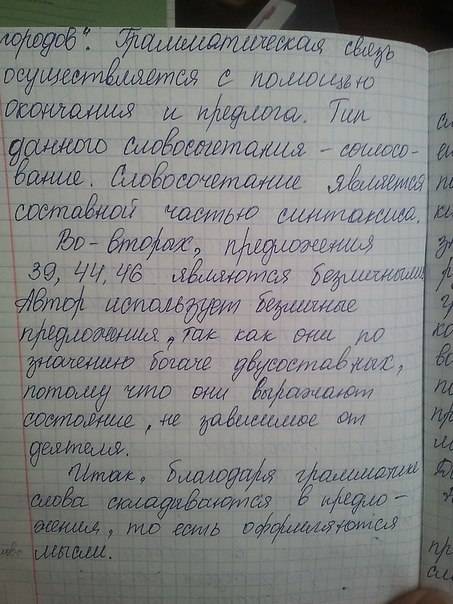 городов". Грамматическая связь
осуществляется с помощью
окончания и предлога. Тип
данного словосочетания – согласо-
вание. Словосочетание является
составной частью синтаксиса.
Во-вторых, предложения
39, 44, 46 являются безличными.
Автор использует безличные
предложения, так как они по
значению богаче двусоставных,
потому что они выражают
состояние, не зависимое от
деятеля.
Итак, благодаря грамматике
слова складываются в предло-
жения, то есть оформляются
мысли.